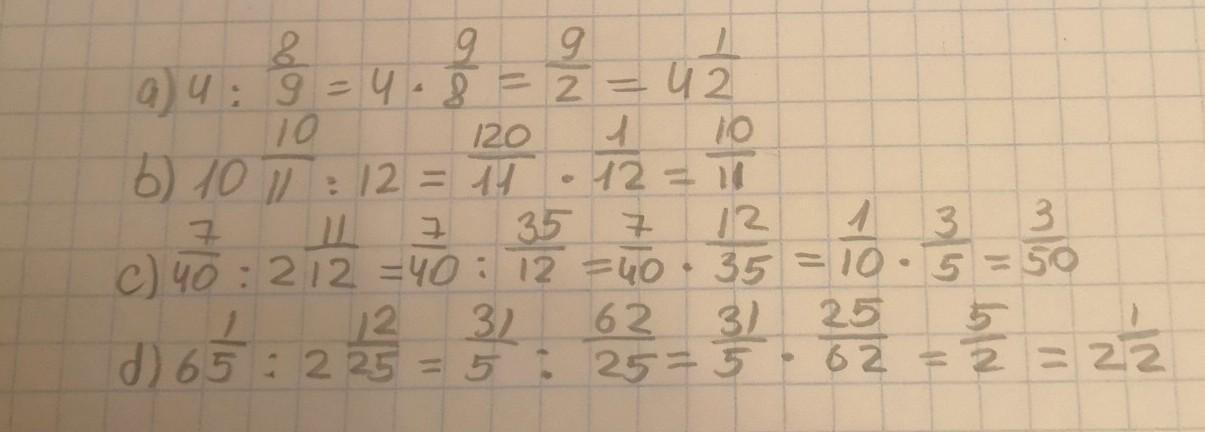 a) 4 : 8/9 = 4 · 9/8 = 9/2 = 4 1/2
b) 10 10/11 : 12 = 120/11 · 1/12 = 10/11
c) 7/40 : 2 11/12 = 7/40 : 35/12 = 7/40 · 12/35 = 1/10 · 3/5 = 3/50
d) 6 1/5 : 2 12/25 = 31/5 : 62/25 = 31/5 · 25/62 = 5/2 = 2 1/2